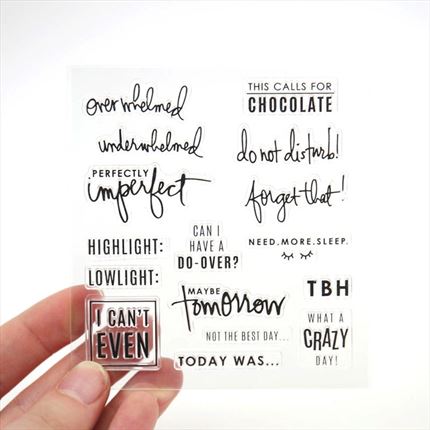 overwhelmed
THIS CALLS FOR
CHOCOLATE
underwhelmed
do not disturb!
PERFECTLY
imperfect
forget that!
CAN I
HAVE A
DO-OVER?
HIGHLIGHT:
NEED.MORE.SLEEP.
LOWLIGHT:
MAYBE
tomorrow
TBH
I CAN'T
EVEN
NOT THE BEST DAY...
WHAT A
CRAZY
DAY!
TODAY WAS...